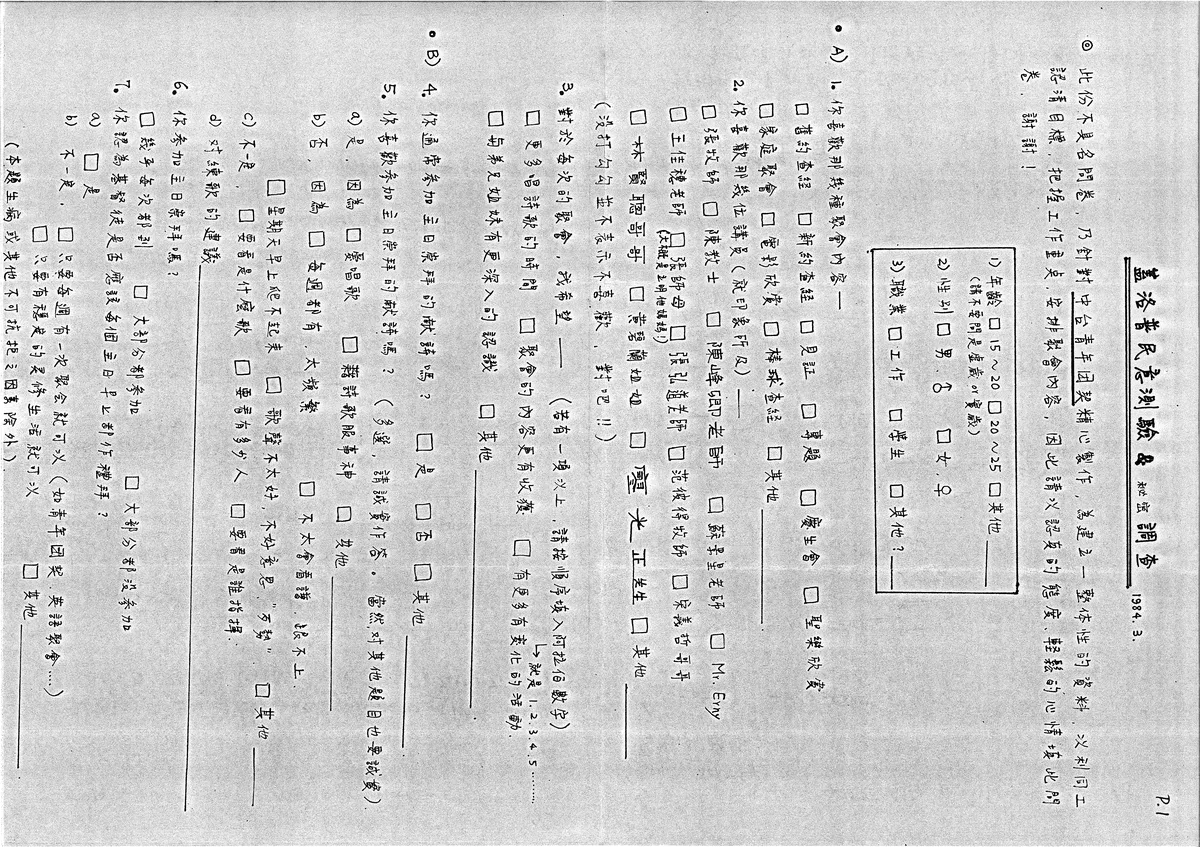 P.1
蓋洛普民意測驗 & 秘密調查 1984.3.
◎ 此份不具名問卷，乃針對中台青年团契精心製作，為建立一整体性的資料，以利同工
認清目標，把握工作重点，安排聚會內容，因此請以認真的態度，輕鬆的心情填此問
卷．謝謝！
1) 年齡 □ 15～20 □ 20～25 □ 其他
(請不要問是虛歲 or 實歲)
2) 性別 □ 男．♂ □ 女．♀
3) 職業 □ 工作 □ 學生 □ 其他？
• A) 1. 你喜歡那幾種聚會內容—
□ 舊約查經 □ 新約查經 □ 見証 □ 專題 □ 慶生會 □ 聖樂欣賞
□ 家庭聚會 □ 電影欣賞 □ 棒球查經 □ 其他
2. 你喜歡那幾位講員(就印象所及)——
□ 張牧師 □ 陳教士 □ 陳峰明老師 □ 蘇景星老師 □ Mr. Erny
□ 王佳穗老師 □ 張師母 □ 張弘道老師 □ 范彼得牧師 □ 宋義哲哥哥
□ 林賢聰哥哥 □ 黃碧蘭姐姐 □ 寇光正先生 □ 其他
(沒打勾勾並不表示不喜歡，對吧!!)
3. 對於每次的聚會，我希望—— (若有一項以上，請按順序填入阿拉伯數字)
↳ 就是1.2.3.4.5………
□ 更多唱詩歌的時間 □ 聚會的內容更有收獲 □ 有更多有变化的活動．
□ 每弟兄姐妹有更深入的認識 □ 其他
• B) 4. 你通常參加主日崇拜的献詩嗎？ □ 是 □ 否 □ 其他
5. 你喜歡參加主日崇拜的献詩嗎？ (多選，請誠實作答。當然对其他題目也要誠實)
a) 是．因為 □ 愛唱歌 □ 藉詩歌服事神 □ 其他
b) 否．因為 □ 每週都有，太頻繁 □ 不太會看譜，跟不上．
□ 星期天早上爬不起來 □ 歌聲不太好，不好意思，"歹勢" □ 其他
c) 不一定． □ 要看是什麼歌 □ 要看有多少人 □ 要看是誰指揮．
d) 对練歌的建議
6. 你參加主日崇拜嗎？
□ 幾乎每次都到 □ 大部分都參加 □ 大部分都沒參加
7. 你認為基督徒是否應該每個主日早上都作禮拜？
a) □ 是
b) 不一定． □ 只要每週有一次聚会就可以(如青年团契，英語聚會……)
□ 只要有穩定的灵修生活就可以 □ 其他
(本題生病或其他不可抗拒之因素除外)